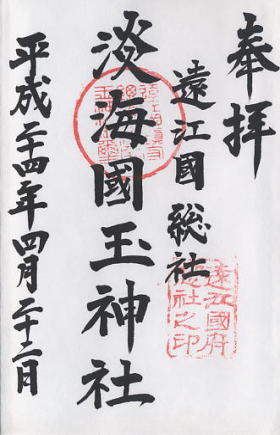 奉拝
遠江國 総社
淡海國玉神社
平成二十四年四月二十二日
遠江國府
總社之印